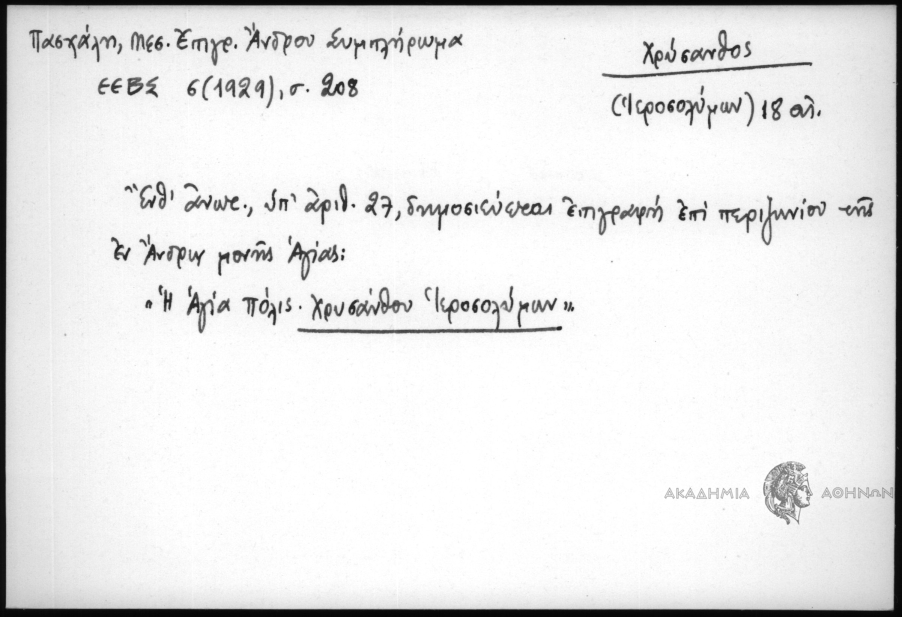 Πασχάλη, Μεσ. Ἐπιγρ. Ἄνδρου Συμπλήρωμα
ΕΕΒΣ 6 (1929), σ. 208
Χρύσανθος
(Ἱεροσολύμων) 18 αἰ.
Ἔνθ' ἀνωτ., ὑπ' ἀριθ. 27, δημοσιεύεται ἐπιγραφή ἐπί περιζωνίου τῆς
ἐν Ἄνδρῳ μονῆς Ἁγίας:
«Ἡ Ἁγία πόλις. Χρυσάνθου Ἱεροσολύμων».
ΑΚΑΔΗΜΙΑ ΑΘΗΝΩΝ